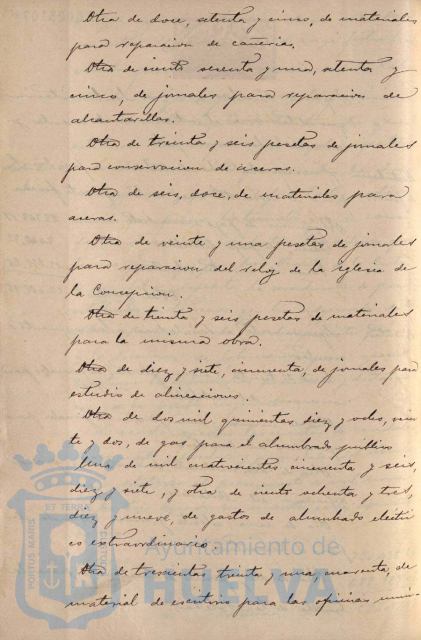 Otra de doce, setenta y cinco, de materiales
para reparacion de cañeria.
Otra de ciento sesenta y una, setenta y
cinco, de jornales para reparacion de
alcantarillas.
Otra de treinta y seis pesetas de jornales
para conservacion de aceras.
Otra de seis, doce, de materiales para
aceras.
Otra de veinte y una pesetas de jornales
para reparacion del reloj de la iglesia de
la Concepcion.
Otra de treinta y seis pesetas de materiales
para la misma obra.
Otra de diez y siete, cincuenta, de jornales para
estudio de alineaciones.
Otra de dos mil quinientas diez y ocho, vein
te y dos, de gas para el alumbrado publico
de mil cuatrocientas cincuenta y seis,
diez y siete, y otra de ciento ochenta y tres,
diez y nueve, de gastos de alumbrado electri
co extraordinario.
Otra de trescientas treinta y una, cuarenta, de
material de escritorio para las oficinas muni-
PORTUS MARIS
ET TERRÆ
Ayuntamiento de
HUELVA